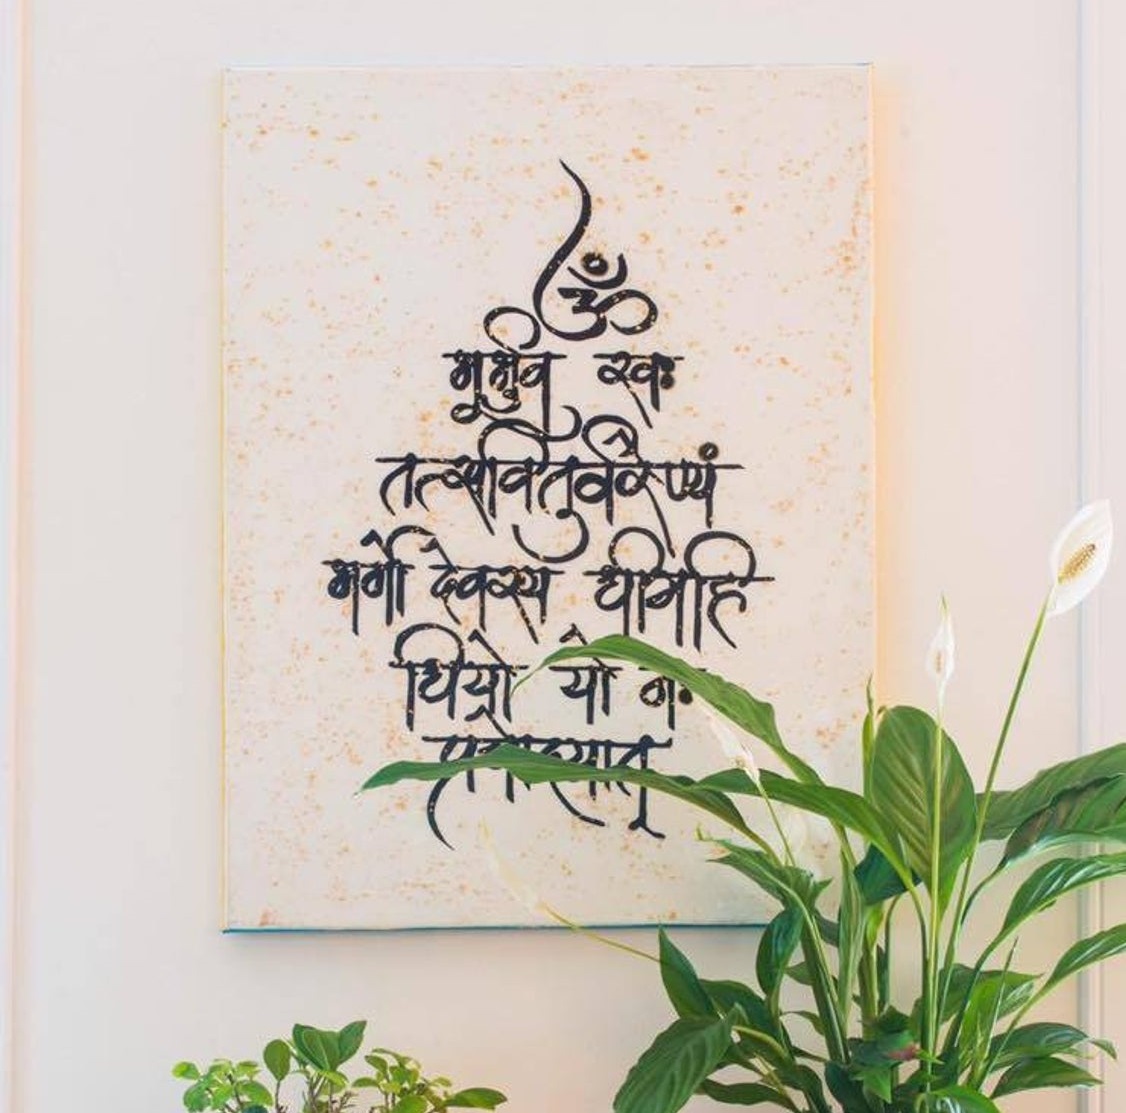 ॐ
भूर्भुव स्वः
तत्सवितुर्वरेण्यं
भर्गो देवस्य धीमहि
धियो यो नः
प्रचोदयात्